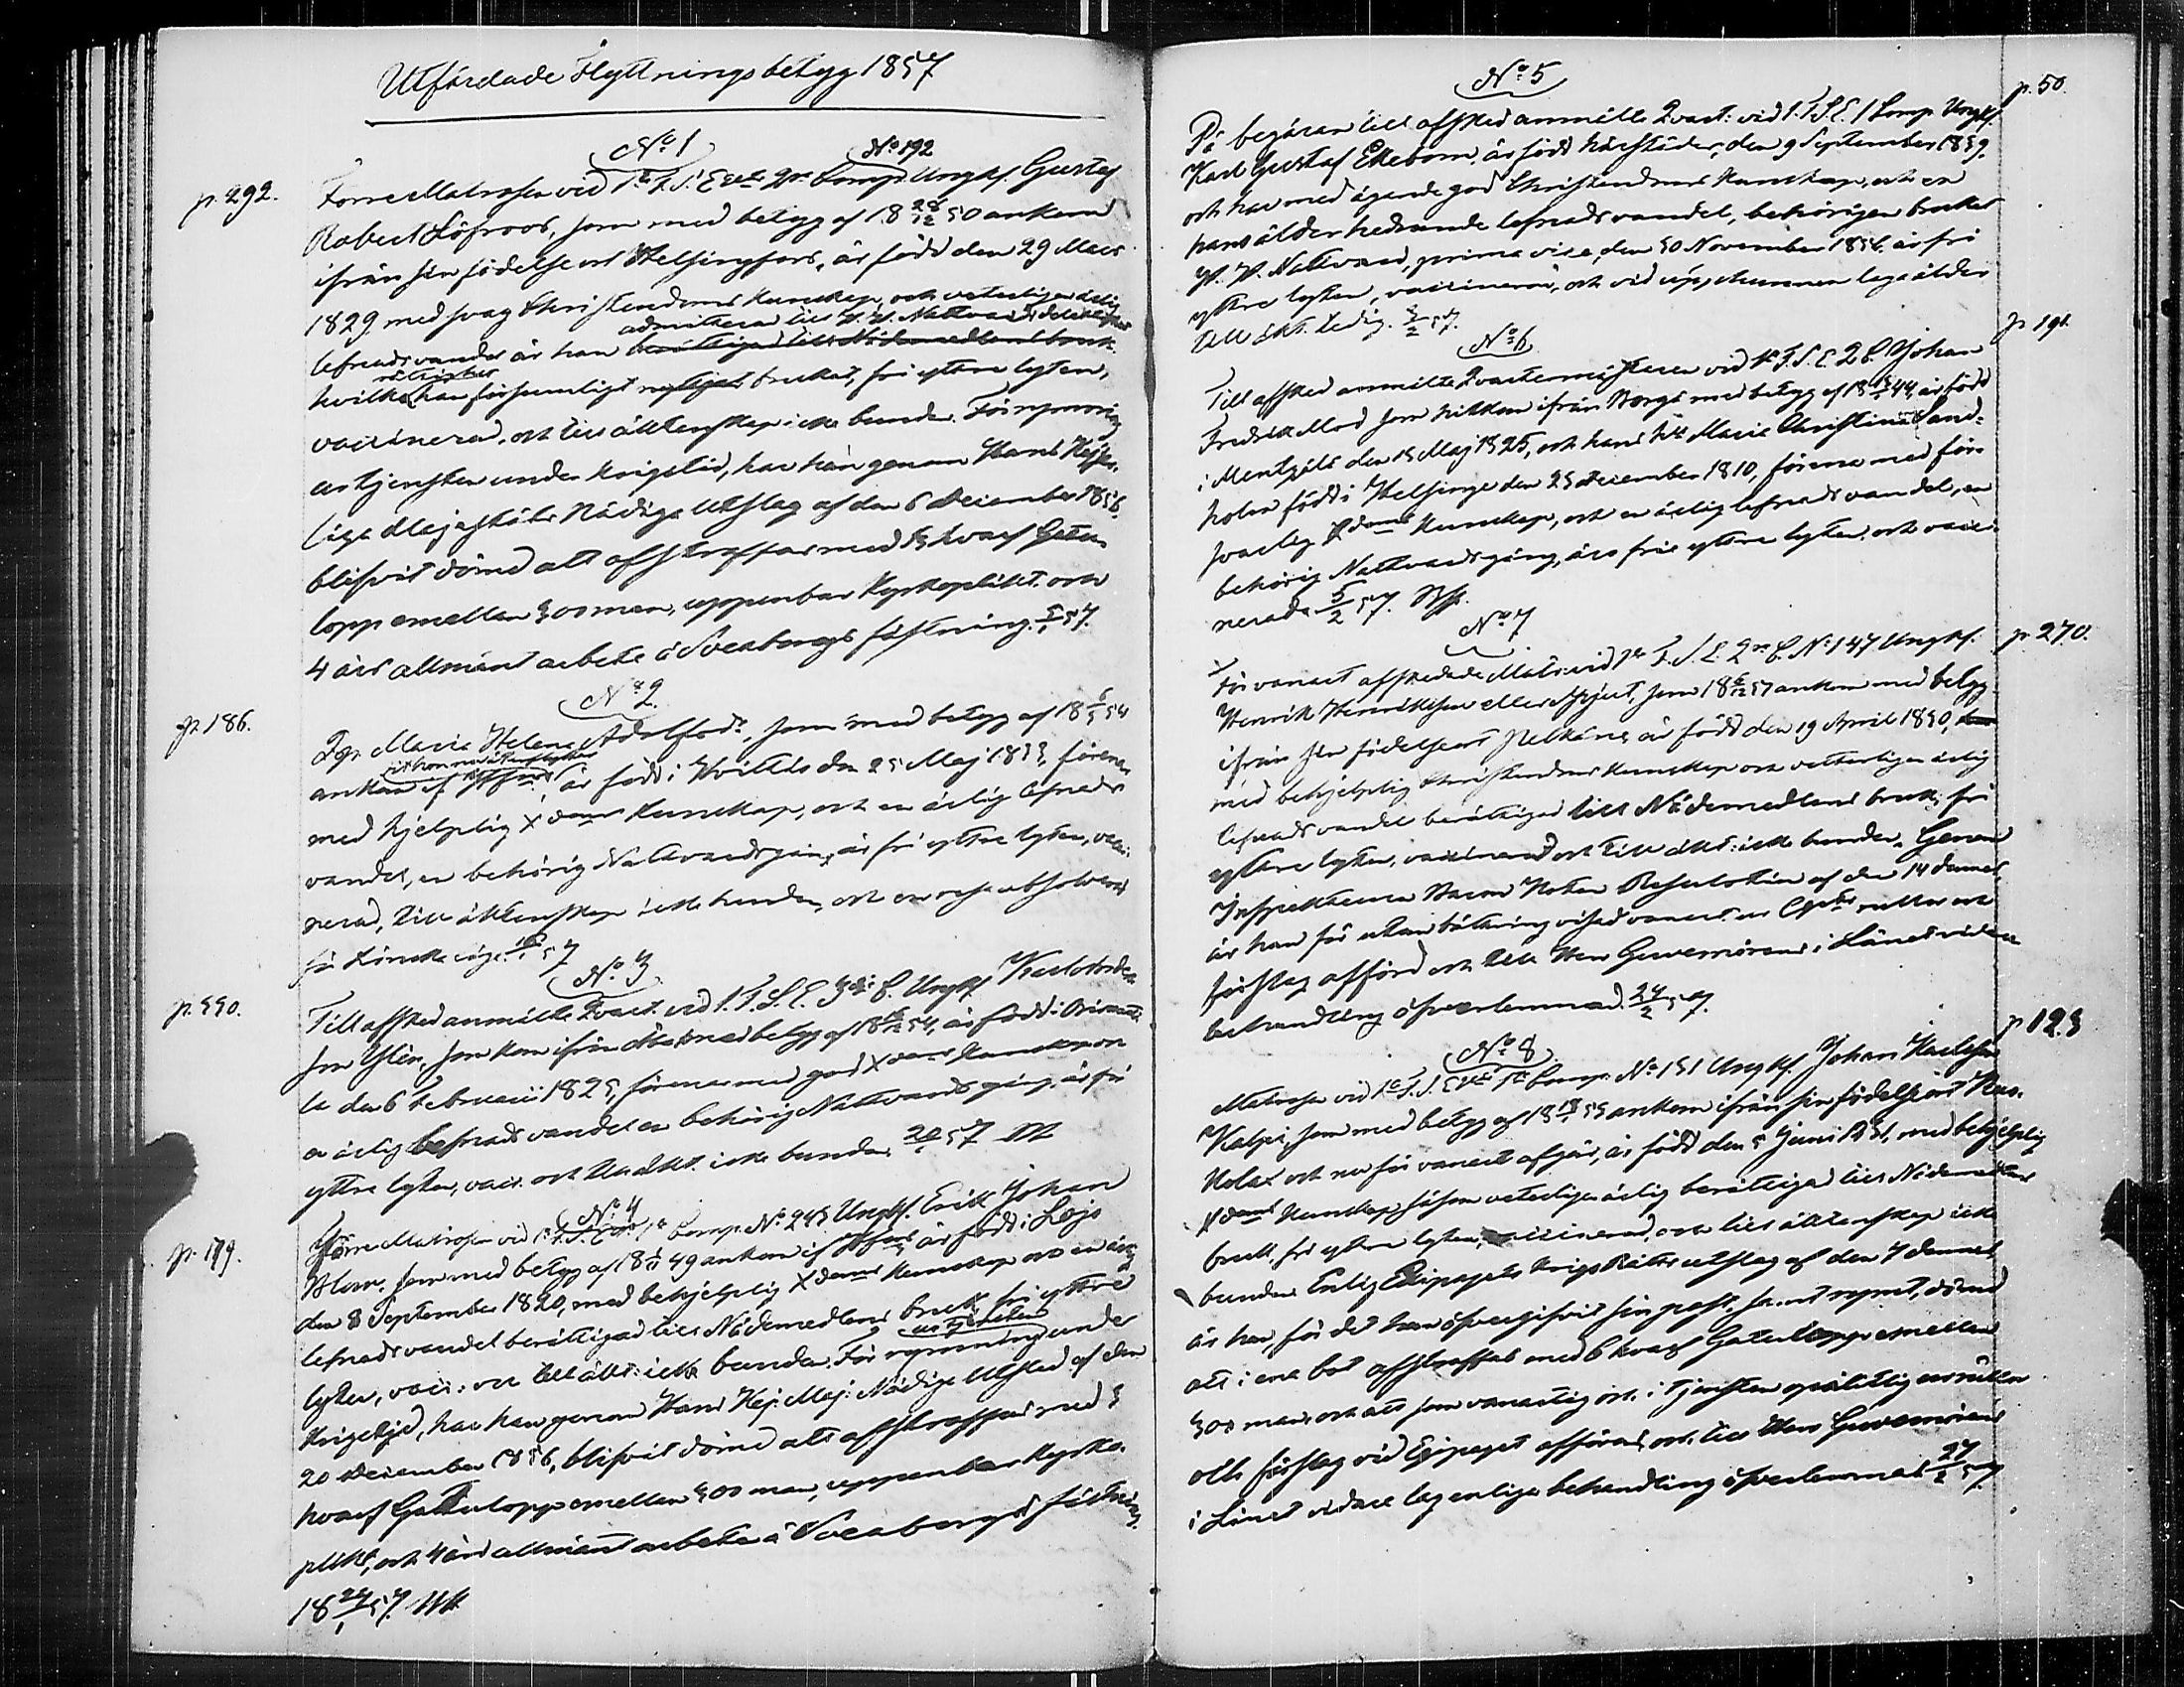 Utfärdade Flyttningsbetyg 1857
No 1 No 192
p. 292. Förre Matrosen vid 1sta F. S. Eqts 2dra Comp. Ungk. Gustaf
Robert Löfroos, som med betyg af 18 28/12 50 ankom
ifrån sin födelseort Helsingfors, är född den 29 Mars
1829 med svag Christendoms kunskap, och veterligen ärlig
admitterad till H. H. Nattvards
lefnadsvandel är han berättigad till Nådemedlens bruk
hvilka han försumligt brukat, fri yttre lyten,
vaccinerad, och till äktenskap icke bunden. För rymning
ur tjensten under krigstid, har han genom Hans Kejser-
liga Majestäts Nådiga Utslag af den 6 December 1856
blifvit dömd att afstraffas med hvarf Gatu-
lopp emellan 300 man, uppenbar Kyrkoplikt och
4 års allmänt arbete å Sveaborgs fästning. 5/1 57.
No 2.
p 186. Maria Helena Adolfsdr, som med betyg af 18 54
ankom är född i Hvittis den 25 Maj 1833, förenar
med hjelplig Xdoms kunskap, och en ärlig lefnads
vandel, en behörig Nattvardsgång, är fri yttre lyten, vacci-
nerad, till äktenskap icke bunden, och
för 57
No 3
p. 550. Till afsked anmälte Qvart. vid 1. F. S. E. 3dje C. Ungk. Karl
som kom ifrån Åbo med betyg af 18 54, är född i
den 6 Februarii 1825, förenar med god Xdoms kunskap och
en ärlig lefnadsvandel en behörig Nattvardsgång, är fri
yttre lyten, vacc. och till äkt. icke bunden 20/1 57
No 4
p. 179. Förre Matrosen vid 1. F. S. Eqts 1sta Comp. No 243 Ungk. Erik Johan
Blom, som med betyg af 18 49 ankom if. Hfors är född i Lojo
den 8 September 1820, med behjelplig Xdoms kunskap och en ärlig
lefnadsvandel berättigad till Nådemedlens bruk, fri yttre
ur tjensten
lyten, vacc: och till äkt: icke bunden. För rymning under
krigstid, har han genom Hans Kej. Maj: Nådiga Utslag af den
20 December 1856, blifvit dömd att afstraffas med 3
hvarf Gatulopp emellan 300 man, uppenbar kyrko-
plikt, och 4 års allmänt arbete å Sveaborgs fästning.
18 24/1 57.
No 5
p. 50. På begäran till afsked anmälte Qvart: vid 1. F. S. E. 1 Comp. Ungk.
Karl Gustaf Ekebom, är född härstädes, den 9 September 1839,
och har med ägande god Christendoms kunskap, och en
hans ålder hedrande lefnadsvandel, behörigen brukat
H. H. Nattvard, prima vice, den 30 November 1856, är fri
yttre lyten, vaccinerad, och vid uppnådd laga ålder
till äkt. ledig. 3/2 57.
No 6
p 191. Till afsked anmälte Qvartermästaren vid 1. F. S. E. 2 C. Johan
Fredrik som hitkom ifrån Borgå med betyg af 18 44, är född
i Mentzälä den 15 Maj 1825, och hans h. Maria Christina Sand-
holm född i Helsinge den 25 December 1810, förena med för-
svarlig Xdoms kunskap, och en ärlig lefnadsvandel, en
behörig Nattvardsgång, äro fria yttre lyten, och vacci-
nerade 5/2 57.
No 7
p. 270. För vanart afskedade Matros. vid 1sta F. S. E. 2dra C. No 147 Ungk.
Henrik Henriksson eller Spjut, som 18 ankom med betyg
ifrån sin födelseort Pelkäne, är född den 19 April 1830,
med behjelplig Christendoms kunskap och veterligen ärlig
lefnadsvandel berättigad till Nådemedlens bruk, fri
yttre lyten, vaccinerad och till äkt: icke bunden. Genom
Inspektorens Resolution af den 14 dennes,
är han för utan bättring vanart ur Eqts rullor och
förslag afförd och till Herr Guvernörens i Länet vidare
behandling öfverlemnad. 24/2 57.
No 8
p 123 Matrosen vid 1sta F. S. Eqts 1sta Comp. No 151 Ungk. Johan Karlsson
Kalpi, som med betyg af 18 55 ankom ifrån sin födelseort
och nu för vanart afgår, är född den 5 Junii 1831, med behjelplig
Xdoms kunskap såsom veterligen ärlig berättigad till Nådemedlens
bruk, fri yttre lyten, vaccinerad, och till äktenskap icke
bunden. Enlig Equipagets KrigsRätts utslag af den 7 dennes
är han, för det han öfvergifvit sin post, samt rymt, dömd
att i ena bot afstraffas med 6 hvarf Gatulopp emellan
300 man, och att som vanartig och i tjensten opålitlig ur rullor
och förslag vid Eqipaget afföras, och till Herr Guvernörens
i Länet vidare lagenliga behandling öfverlemnas 27/2 57.